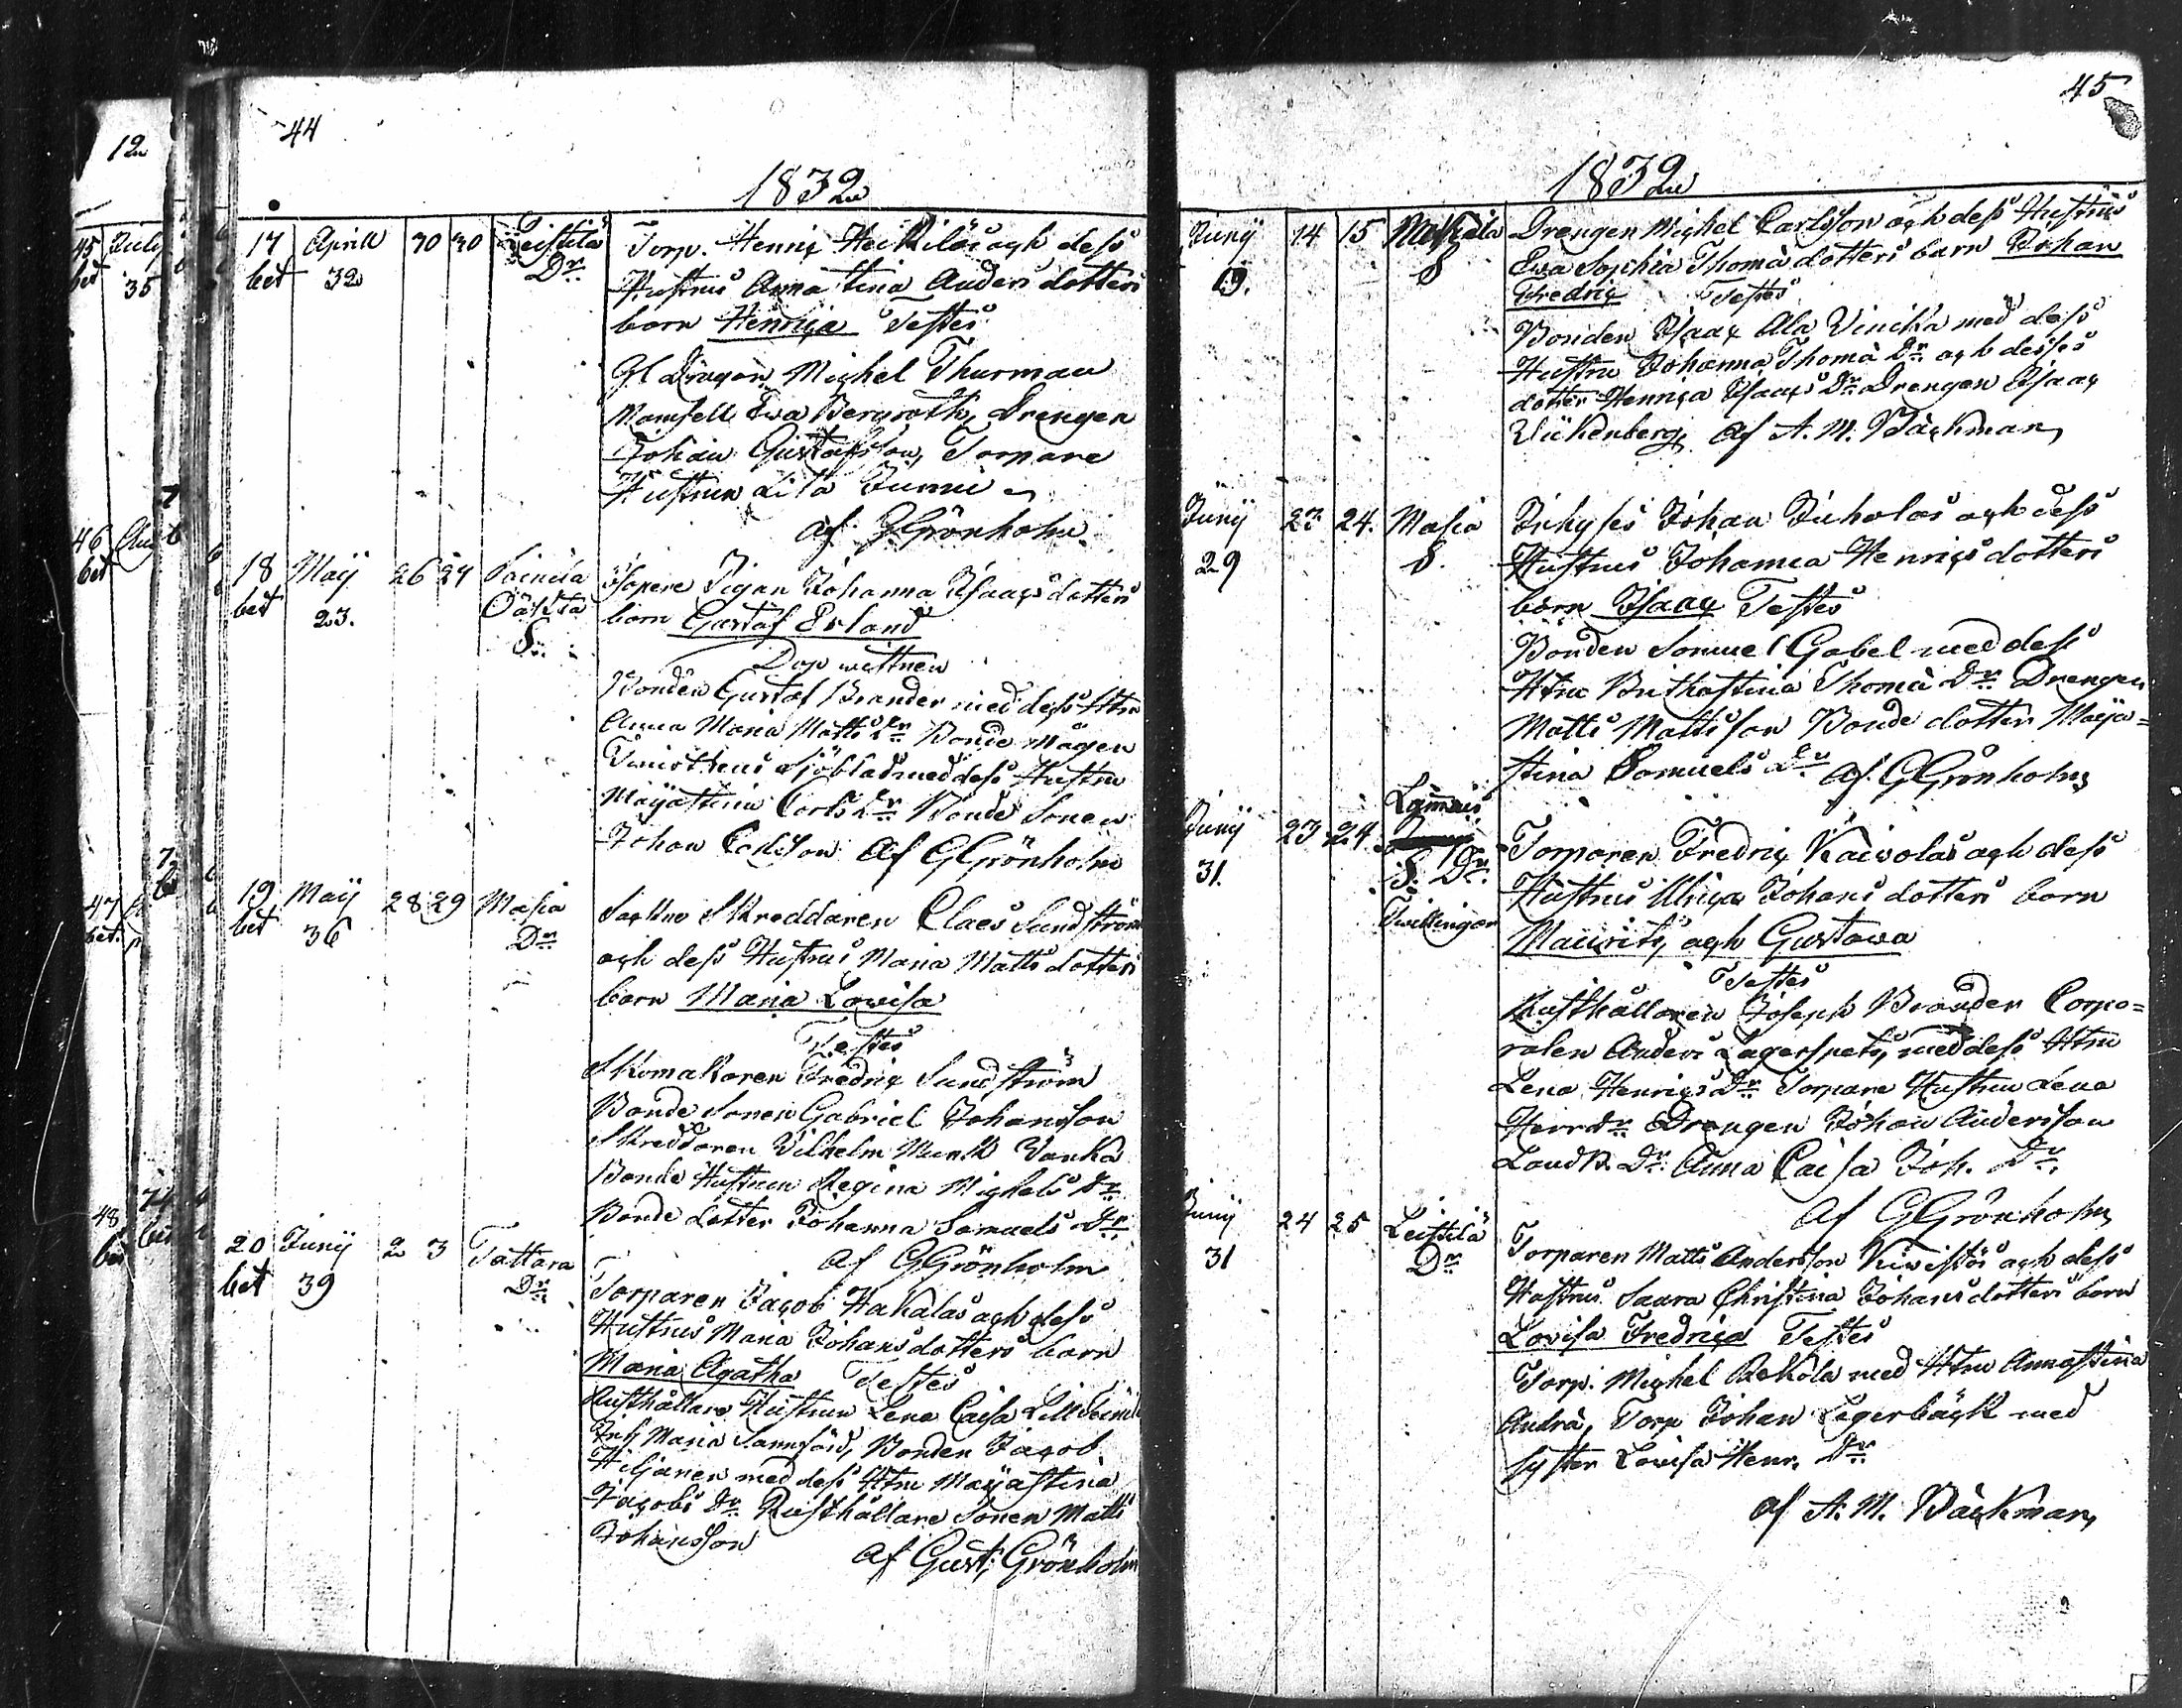 12
45 July
bet 35
46
bet
47
bet.
48
bet
44
1832
17 Aprill 30 30 Leistilä
bet 32 Dr
Torp. Henriç Heikiläs och dess
Hustrus Anna Stina Anders dotters
barn Henriça Testes
Gl Dragon Michel Thurman
Mamsell Eva Bergroth, Drengen
Johan Gustafsson, Torpare
Hustrun Lisa Junni
af GGrönholm
18 May 26 27
bet 23. S.
Pigan Johanna Isaacs dotters
barn Gustaf Erland
Dop wittnen
Bonden Gustaf Brander med dess Htru
Anna Maria Matts Dr Bonde mågen
Sjöblad med dess Hustru
Maijastina Carls Dr Bonde Sonen
Johan Carlsson af GGrönholm
19 May 28 29 Masia
bet 36 Dr
Sockne Skreddaren Claes Sundström
och dess Hustrus Maria Matts dotters
barn Maria Lovisa
Testes
Skomakaren Fredriç Sundström
Bonde Sonen Gabriel Johansson
Skreddaren Vilhelm Munk Vanka
Bonde Hustrun Regina Michels Dr
Bonde dotter Johanna Samuels Dr
af GGrönholm
20 Junij 2 3 Tattara
bet 39 Dr
Torparen Jacob Hakalas och dess
Hustrus Maria Johans dotters barn
Maria Agatha Testes
Rusthållare Hustrun Lena Caisa
Maria Bonden Jacob
Hiljanen med dess Htru Maijastina
Jacobs Dr Rusthållare Sonen Matts
Johansson
af Gust: Grönholm
45
1832
Junij 14 15 Mattila
19. S
Drengen Michel Carlsson och dess Hustrus
Eva Sophia Thomä dotters barn Johan
Fredriç Testes
Bonden Isaac Ala Vinika med dess
Hustru Johanna Thomä Dr och desses
dotter Henriça Isaacs Dr Drengen Isaac
Wickenberg, af A. M. Bäckman
Junij 23 24. Masia
29 S.
Johan och dess
Hustrus Johanna Henrics dotters
barn Isaac Testes
Bonden Samuel Gabel med dess
Htru Brithastina Thomä Dr Drengen
Matts Mattsson Bonde dotter Maija=
stina Samuels Dr af GGrönholm
Junij 23 24 Lammais
31. S. Dr.
Twillingar
Torparen Fredriç Kaivolas och dess
Hustrus Ulriça Johans dotters barn
Maurits, och Gustava
Testes
Rusthållaren Joseph Brander Corpo=
ralen Anders Lagerspets, med dess Htru
Lena Henrics Dr Torpare Hustrun Lena
Henr Dr Drengen Johan Andersson
Dr Anna Caisa Joh. Dr
af GGrönholm
Junij 24 25 Leistilä
31 Dr
Torparen Matts Andersson Kivistös och dess
Hustrus Saara Christina Johans dotters barn
Lovisa Fredrica Testes
Torp. Michel med Htru Annastina
Andrä, Torp Johan Legerbäck med
syster Lovisa Henr. Dr
af A. M. Bäckman